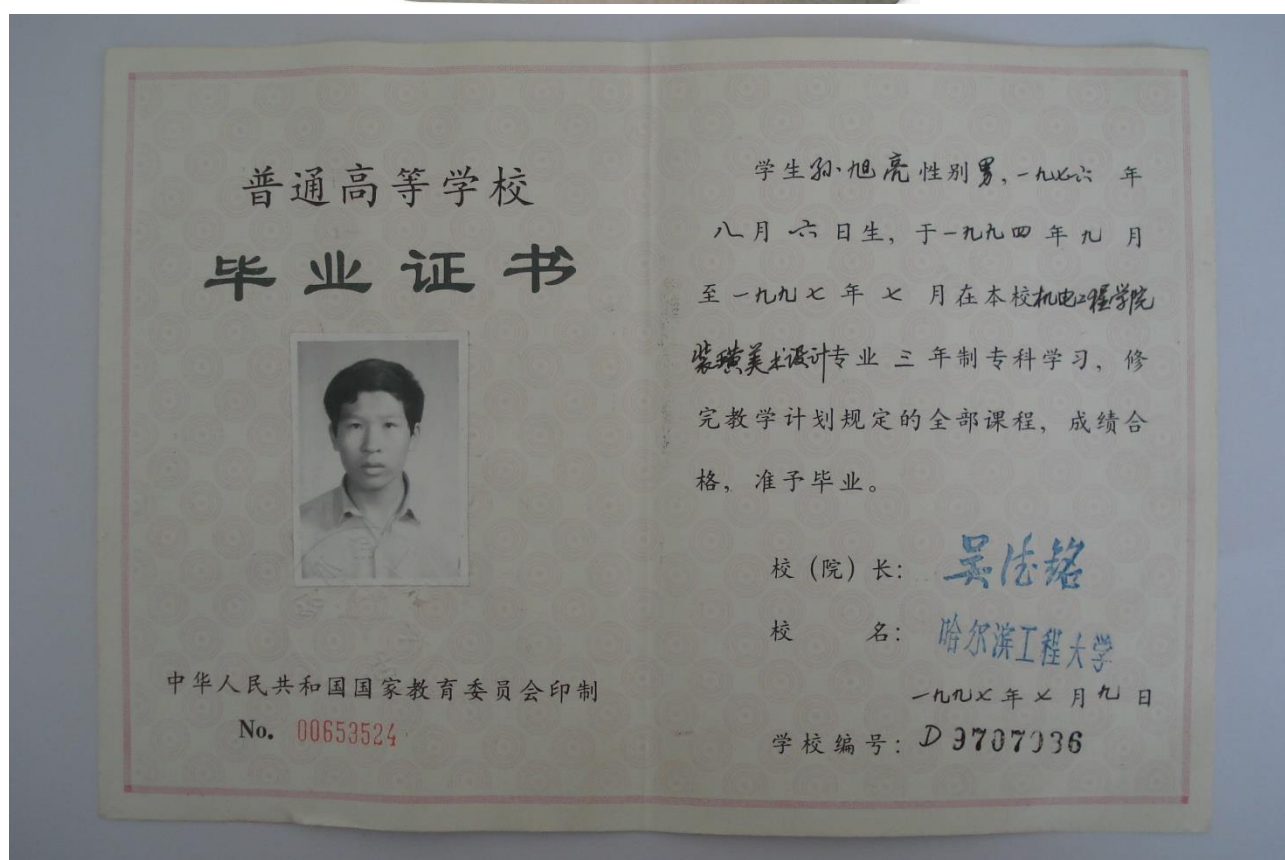 普通高等学校
毕业证书
中华人民共和国国家教育委员会印制
No. 00653524
学生孙旭亮性别男,一九七六 年
八月 六 日生, 于一九九四 年 九 月
至 一九九七 年 七 月在本校机电工程学院
装璜美术设计专业 三 年制专科学习, 修
完教学计划规定的全部课程, 成绩合
格, 准予毕业。
校（院）长: 吴德铭
校 名: 哈尔滨工程大学
一九九七 年 七 月 九 日
学校编号: D 9707036